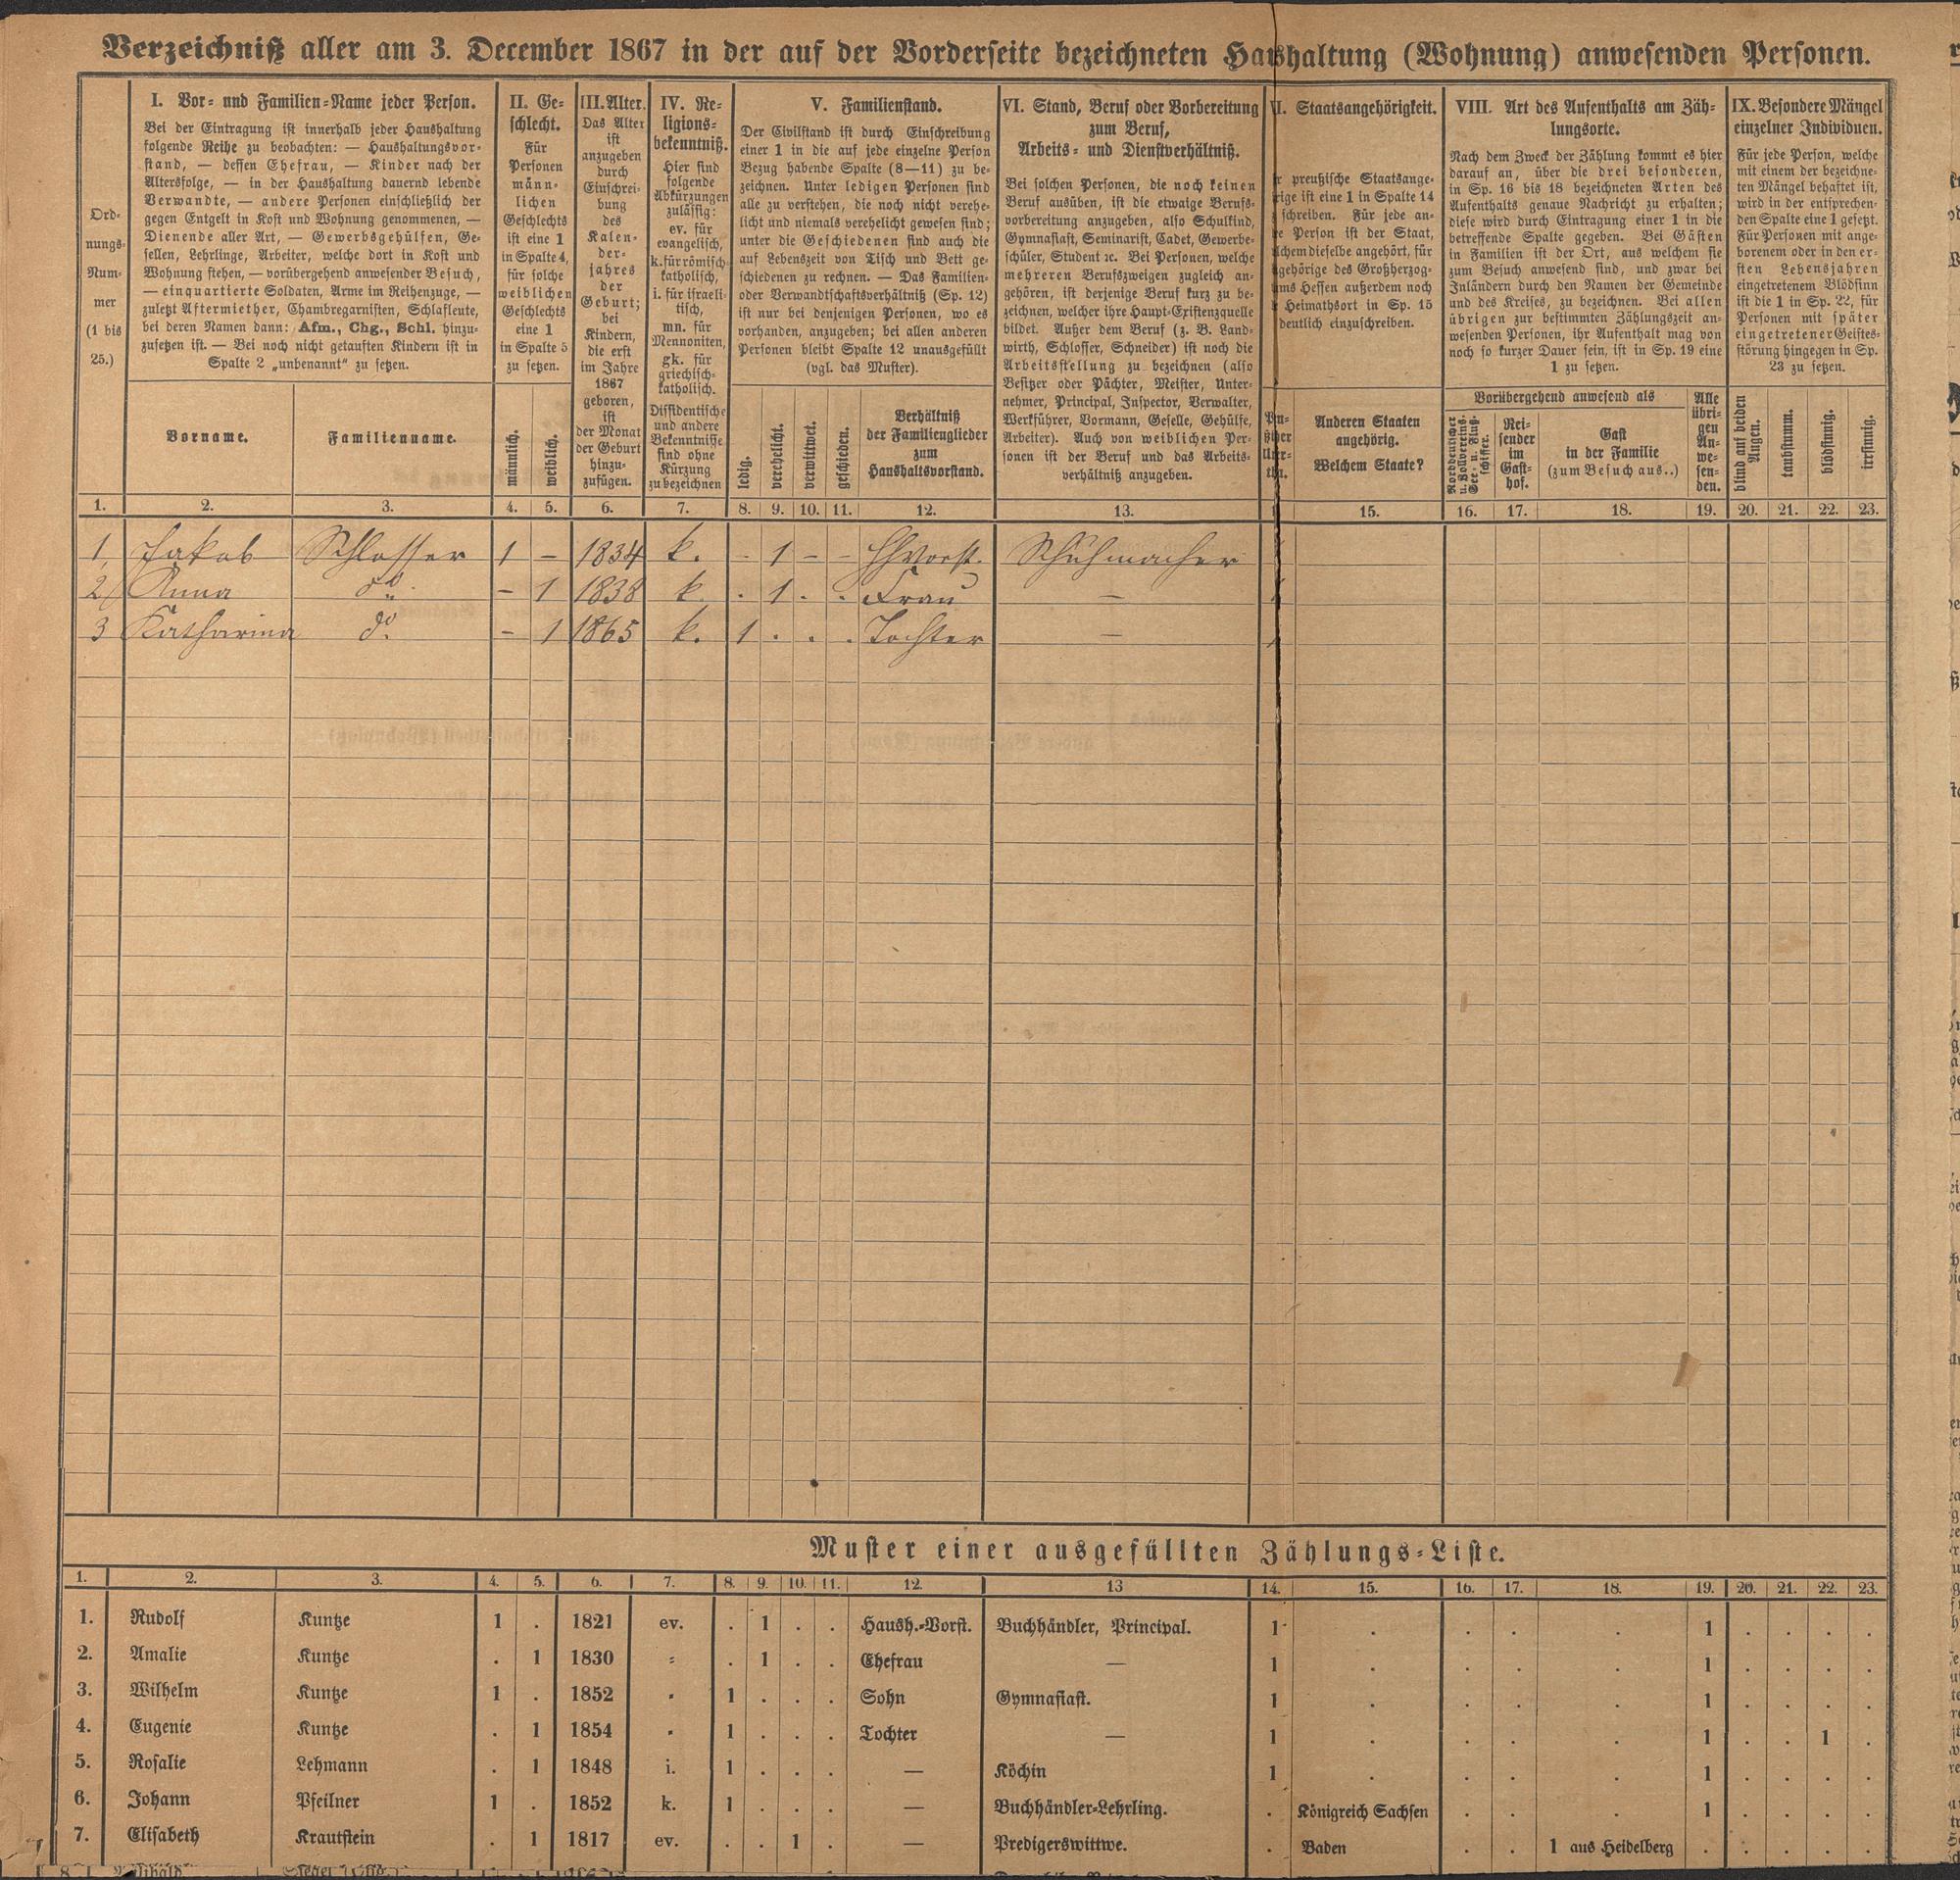 Verzeichniß aller am 3. December 1867 in der auf der Vorderseite bezeichneten Haushaltung (Wohnung) anwesenden Personen.
Ord-
nungs-
Num-
mer
(1 bis
25.)
I. Vor- und Familien-Name jeder Person.
Bei der Eintragung ist innerhalb jeder Haushaltung
folgende Reihe zu beobachten: — Haushaltungsvor-
stand, — dessen Ehefrau, — Kinder nach der
Altersfolge, — in der Haushaltung dauernd lebende
Verwandte, — andere Personen einschließlich der
gegen Entgelt in Kost und Wohnung genommenen, —
Dienende aller Art, — Gewerbsgehülfen, Ge-
sellen, Lehrlinge, Arbeiter, welche dort in Kost und
Wohnung stehen, — vorübergehend anwesender Besuch,
— einquartierte Soldaten, Arme im Reihenzuge, —
zuletzt Aftermiether, Chambregarnisten, Schlafleute,
bei deren Namen dann: Afm., Chg., Schl. hinzu-
zusetzen ist. — Bei noch nicht getauften Kindern ist in
Spalte 2 „unbenannt“ zu setzen.
Vorname.
Familienname.
II. Ge-
schlecht.
Für
Personen
männ-
lichen
Geschlechts
ist eine 1
in Spalte 4,
für solche
weiblichen
Geschlechts
eine 1
in Spalte 5
zu setzen.
männlich.
weiblich.
III. Alter.
Das Alter
ist
anzugeben
durch
Einschrei-
bung
des
Kalen-
der-
jahres
der
Geburt;
bei
Kindern,
die erst
im Jahre
1867
geboren,
ist
der Monat
der Geburt
hinzu-
zufügen.
IV. Re-
ligions-
bekenntniß.
Hier sind
folgende
Abkürzungen
zulässig:
ev. für
evangelisch,
k. für römisch-
katholisch,
i. für israeli-
tisch,
mn. für
Mennoniten,
gk. für
griechisch-
katholisch.
Dissidentische
und andere
Bekenntnisse
sind ohne
Kürzung
zu bezeichnen
V. Familienstand.
Der Civilstand ist durch Einschreibung
einer 1 in die auf jede einzelne Person
Bezug habende Spalte (8—11) zu be-
zeichnen. Unter ledigen Personen sind
alle zu verstehen, die noch nicht verehe-
licht und niemals verehelicht gewesen sind;
unter die Geschiedenen sind auch die
auf Lebenszeit von Tisch und Bett ge-
schiedenen zu rechnen. — Das Familien-
oder Verwandtschaftsverhältniß (Sp. 12)
ist nur bei denjenigen Personen, wo es
vorhanden, anzugeben; bei allen anderen
Personen bleibt Spalte 12 unausgefüllt
(vgl. das Muster).
ledig.
verehelicht.
verwittwet.
geschieden.
Verhältniß
der Familienglieder
zum
Haushaltsvorstand.
VI. Stand, Beruf oder Vorbereitung
zum Beruf,
Arbeits- und Dienstverhältniß.
Bei solchen Personen, die noch keinen
Beruf ausüben, ist die etwaige Berufs-
vorbereitung anzugeben, also Schulkind,
Gymnasiast, Seminarist, Cadet, Gewerbe-
schüler, Student ꝛc. Bei Personen, welche
mehreren Berufszweigen zugleich an-
gehören, ist derjenige Beruf kurz zu be-
zeichnen, welcher ihre Haupt-Existenzquelle
bildet. Außer dem Beruf (z. B. Land-
wirth, Schlosser, Schneider) ist noch die
Arbeitsstellung zu bezeichnen (also
Besitzer oder Pächter, Meister, Unter-
nehmer, Principal, Inspector, Verwalter,
Werkführer, Vormann, Geselle, Gehülfe,
Arbeiter). Auch von weiblichen Per-
sonen ist der Beruf und das Arbeits-
verhältniß anzugeben.
II. Staatsangehörigkeit.
r preußische Staatsange-
rige ist eine 1 in Spalte 14
schreiben. Für jede an-
e Person ist der Staat,
lchem dieselbe angehört, für
gehörige des Großherzog-
ums Hessen außerdem noch
Heimathsort in Sp. 15
deutlich einzuschreiben.
Anderen Staaten
angehörig.
Welchem Staate?
VIII. Art des Aufenthalts am Zäh-
lungsorte.
Nach dem Zweck der Zählung kommt es hier
darauf an, über die drei besonderen,
in Sp. 16 bis 18 bezeichneten Arten des
Aufenthalts genaue Nachricht zu erhalten;
diese wird durch Eintragung einer 1 in die
betreffende Spalte gegeben. Bei Gästen
in Familien ist der Ort, aus welchem sie
zum Besuch anwesend sind, und zwar bei
Inländern durch den Namen der Gemeinde
und des Kreises, zu bezeichnen. Bei allen
übrigen zur bestimmten Zählungszeit an-
wesenden Personen, ihr Aufenthalt mag von
noch so kurzer Dauer sein, ist in Sp. 19 eine
1 zu setzen.
Vorübergehend anwesend als
Norddeutscher
u. Vollvereins-
See- u. Fluß-
schiffer.
Rei-
sender
im
Gast-
hof.
Gast
in der Familie
(zum Besuch aus..)
Alle
übri-
gen
An-
we-
sen-
den.
IX. Besondere Mängel
einzelner Individuen.
Für jede Person, welche
mit einem der bezeichne-
ten Mängel behaftet ist,
wird in der entsprechen-
den Spalte eine 1 gesetzt.
Für Personen mit ange-
borenem oder in den er-
sten Lebensjahren
eingetretenem Blödsinn
ist die 1 in Sp. 22, für
Personen mit später
eingetretener Geistes-
störung hingegen in Sp.
23 zu setzen.
blind auf beiden
Augen.
taubstumm.
blödsinnig.
irrsinnig.
1. 2. 3. 4. 5. 6. 7. 8. 9. 10. 11. 12. 13. 15. 16. 17. 18. 19. 20. 21. 22. 23.
1, Jakob Schlosser 1 – 1834 k. - 1 - - HhVorst. Schuhmacher
2, Anna do – 1 1838 k. . 1 . . Frau —
3 Katharina do – 1 1865 k. 1 . . . Tochter —
Muster einer ausgefüllten Zählungs-Liste.
1. 2. 3. 4. 5. 6. 7. 8. 9. 10. 11. 12. 13 14. 15. 16. 17. 18. 19. 20. 21. 22. 23.
1. Rudolf Kuntze 1 . 1821 ev. . 1 . . Haush.-Vorst. Buchhändler, Principal. 1 . . . . 1 . . . .
2. Amalie Kuntze . 1 1830 " . 1 . . Ehefrau — 1 . . . . 1 . . . .
3. Wilhelm Kuntze 1 . 1852 " 1 . . . Sohn Gymnasiast. 1 . . . . 1 . . . .
4. Eugenie Kuntze . 1 1854 " 1 . . . Tochter — 1 . . . . 1 . . 1 .
5. Rosalie Lehmann . 1 1848 i. 1 . . . — Köchin 1 . . . . 1 . . . .
6. Johann Pfeilner 1 . 1852 k. 1 . . . — Buchhändler-Lehrling. . Königreich Sachsen . . . 1 . . . .
7. Elisabeth Krautstein . 1 1817 ev. . . 1 . — Predigerswittwe. . Baden . . 1 aus Heidelberg . . . . .